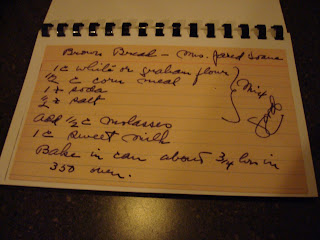 Brown Bread - Mrs. Jared
1 c white or graham flour
1/2 c corn meal
1 t soda
1/2 t salt
Mix
Add 1/2 c molasses
1 c sweet milk
Bake in can about 3/4 hr in
350 oven.